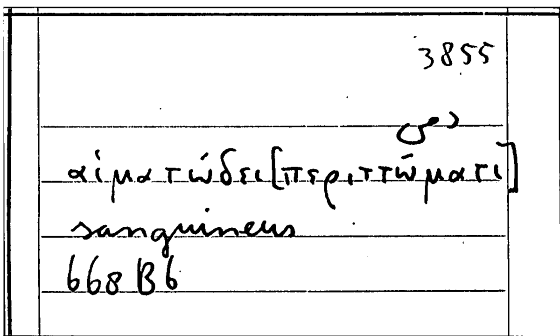 3855
αἱματώδει [περιττώματι]
sanguineus
668 B6